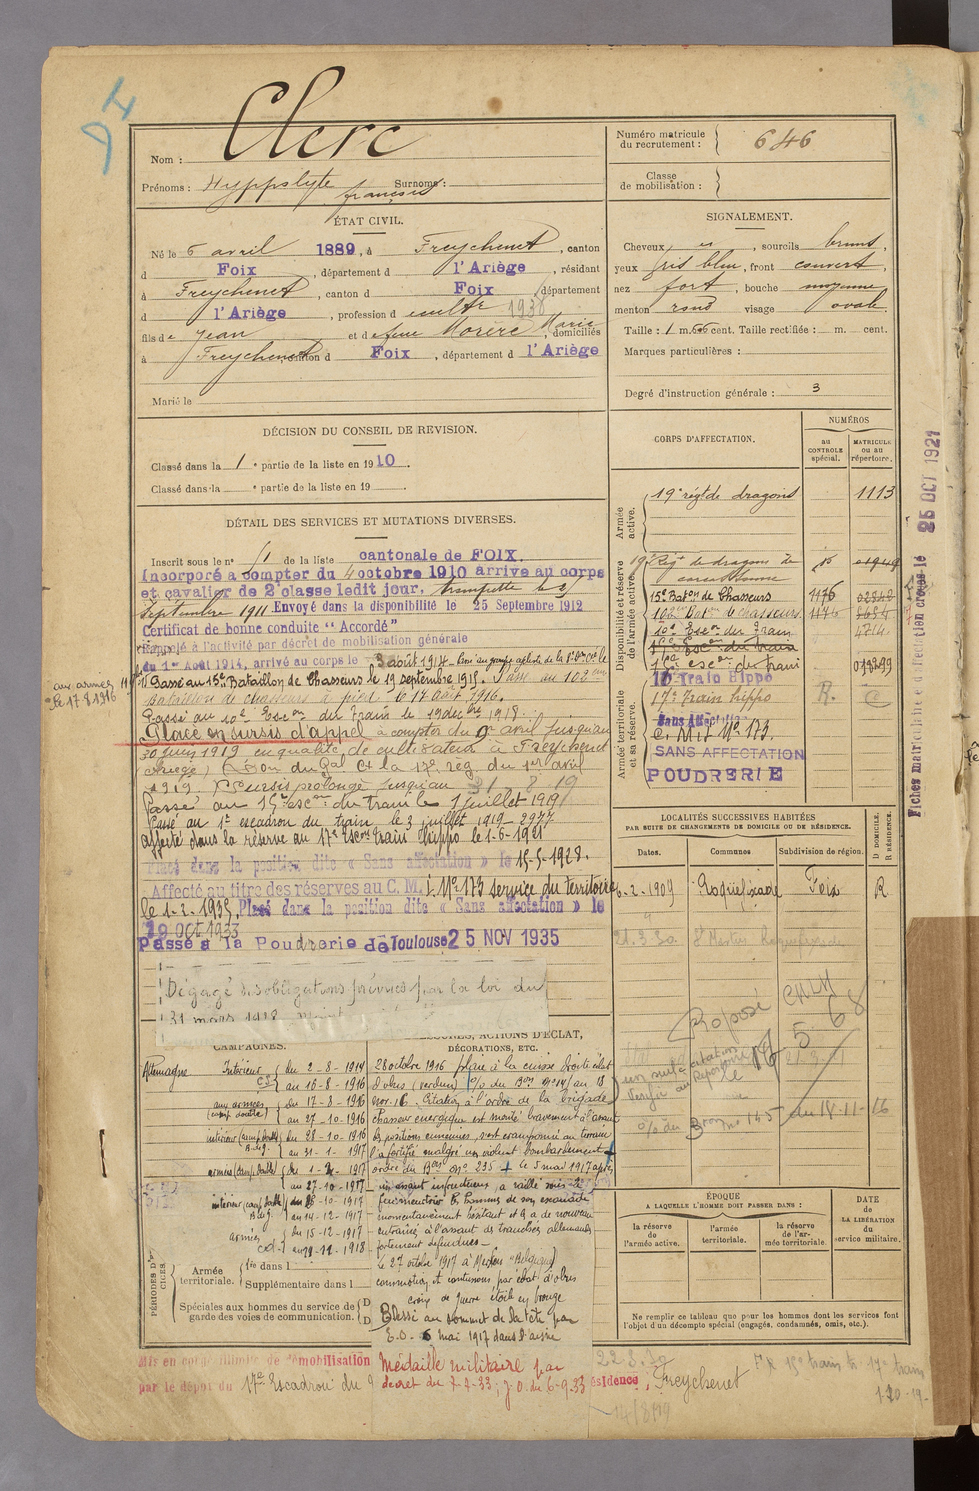 Nom : Clerc
Prénoms : Hyppolyte françois Surnoms :
Numéro matricule du recrutement : 646
Classe de mobilisation :
ÉTAT CIVIL.
Né le 6 avril 1889, à Freychenet, canton
d Foix, département d l'Ariège, résidant
à Freychenet, canton d Foix, département
d l'Ariège, profession d cultr 1938
fils de Jean et de feue Morère Marie, domiciliés
à Freychenet, canton d Foix, département d l'Ariège
Marié le
SIGNALEMENT.
Cheveux, sourcils bruns,
yeux gris bleu, front couvert,
nez fort, bouche moyenne
menton rond visage ovale
Taille : 1 m. 66 cent. Taille rectifiée : m. cent.
Marques particulières :
Degré d'instruction générale : 3
DÉCISION DU CONSEIL DE REVISION.
Classé dans la 1e partie de la liste en 1910.
Classé dans la e partie de la liste en 19
DÉTAIL DES SERVICES ET MUTATIONS DIVERSES.
Inscrit sous le n° 51 de la liste cantonale de FOIX.
Incorporé à compter du 4 octobre 1910 arrivé au corps
et cavalier de 2e classe ledit jour, trompette le 25
Septembre 1911. Envoyé dans la disponibilité le 25 Septembre 1912
Certificat de bonne conduite "Accordé"
Rappelé à l'activité par décret de mobilisation générale
du 1er Août 1914, arrivé au corps le 3 août 1914
Passé au 15e Bataillon de Chasseurs le 19 septembre 1915. Passé au 102em
Bataillon de chasseurs à pied le 17 août 1916.
aux armées le 17 8 1916
Passé au 10e Escon du Train le 19 dechre 1918.
Placé en sursis d'appel à compter du 9 avril jusqu'au
30 juin 1919 en qualité de cultivateur à Freychenet
(Ariège) Don du Gal Ct la 17e rég. du 1er avril
1919. Sursis prolongé jusqu'au 31 8 19
Passé au 15e escon du train le 1 juillet 1919
Passé au 1er escadron du train le 3 juillet 1919 2977
Affecté dans la réserve au 17e Escon train Hippo le 1-6-1921
Placé dans la position dite « Sans affectation » le 15-5-1928.
Affecté au titre des réserves au C. M. I. N° 173 service du territoire
le 1-2-1933, Placé dans la position dite « Sans affectation » le
19 OCT 1933
Passé à la Poudrerie de Toulouse 25 NOV 1935
Dégagé des obligations prévues par la loi du
31 mars 1928
CORPS D'AFFECTATION.
NUMÉROS
au CONTROLE spécial.
MATRICULE ou au répertoire.
Armée active.
19e régt de dragons 1113
Disponibilité et réserve de l'armée active.
19e Rég de dragons de carcassonne 15 01949
15e Baton de Chasseurs 1176 02840
102e Baton de chasseurs 1176 8654
10e Escon du Train 4714
15e Escon du train
1er escon du train
17e Train Hippo
Armée territoriale et sa réserve.
17e train hippo R. C
Sans Affectation
C. M. I. N° 173.
SANS AFFECTATION
POUDRERIE
Fiches matricule et d'affectation créées le 25 OCT 1921
LOCALITÉS SUCCESSIVES HABITÉES
PAR SUITE DE CHANGEMENTS DE DOMICILE OU DE RÉSIDENCE.
D DOMICILE. R RÉSIDENCE.
Dates. Communes Subdivision de région.
6-2-1909 Roquefixade Foix R
21.3.30 St Martin
Proposé
CAMPAGNES.
Allemagne Intérieur du 2-8-1914
au 16-8-1916
aux armées (camp. double) du 17-8-1916
au 27-10-1916
intérieur (camp. double) du 28-10-1916
au 31-1-1917
armées (camp. double)
au 27-10-1917
intérieur (camp. double) du 28-10-1917
au 14-12-1917
armées du 15-12-1917
BLESSURES, ACTIONS D'ÉCLAT, DÉCORATIONS, ETC.
28 octobre 1916 plaie à la cuisse droite éclat
d'obus (verdun)
nov. 16. Citation à l'ordre de la brigade
chasseur énergique est monté bravement à l'assaut
des positions ennemies, s'est cramponné au terrain
l'a fortifié malgré un violent bombardement
ordre du n° 235 le 5 mai 1917 après
un assaut infructueux a rallié sous le
feu meurtrier les hommes de son escouade
momentanément hésitant et les a de nouveau
entraînés à l'assaut des tranchées allemandes
fortement défendues
le 27 octobre 1917 à Merken (Belgique)
commotion et contusions par éclat d'obus
croix de guerre étoile en bronze
Blessé au sommet de la tête par
E.O. 6 mai 1917 dans l'aisne
Médaille militaire par
decret du 7-2-33; J.O. du 6-9-33
PÉRIODES D'EXERCICES.
Armée territoriale. 1re dans l
Supplémentaire dans l
Spéciales aux hommes du service de garde des voies de communication.
ÉPOQUE
A LAQUELLE L'HOMME DOIT PASSER DANS :
la réserve de l'armée active.
l'armée territoriale.
la réserve de l'armée territoriale
DATE de LA LIBÉRATION du service militaire.
Ne remplir ce tableau que pour les hommes dont les services font l'objet d'un décompte spécial (engagés, condamnés, omis, etc.).
Mis en congé illimité de démobilisation
par le dépôt du 17e Escadron du
Résidence, Freychenet
22.8.30
14/8/19